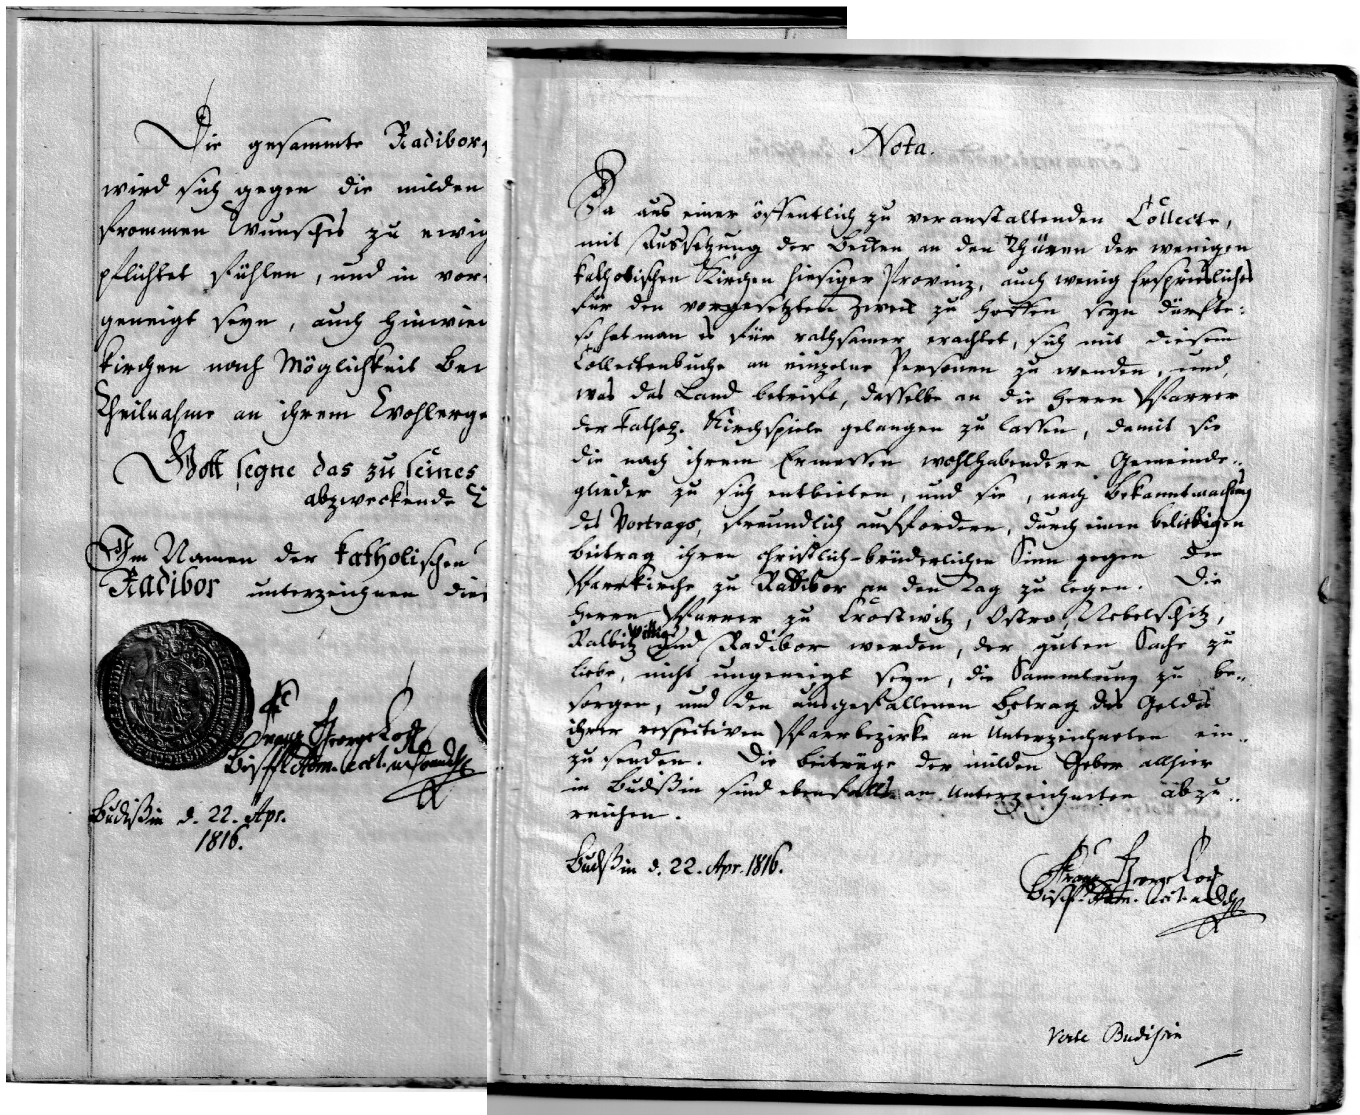 Die gesammte Radibor
wird sich gegen die milden
frommen Wunsches zu ewig
pflichtet fühlen, und in vor
geneigt seyn, auch hinwied
kirchen nach Möglichkeit bei
Theilnahme an ihrem Wohlerge
Gott segne das zu seines
abzweckende
Im Namen der katholischen
Radibor unterzeichnen dies
Franz George Lock
Bischfl. Adm. eccl.
Budißin d. 22. Apr.
1816.
Nota.
Da aus einer öffentlich zu veranstaltenden Collecte,
mit Aussetzung der Becken an den Thüren der wenigen
katholischen Kirchen hiesiger Provinz, auch wenig Ersprießliches
für den vorgesetzten Zweck zu hoffen seyn dürfte:
so hat man es für rathsamer erachtet, sich mit diesem
Collectenbuche an einzelne Personen zu wenden, und,
was das Land betrifft, dasselbe an die Herrn Pfarrer
der kathol. Kirchspiele gelangen zu lassen, damit sie
die nach ihrem Ermessen wohlhabendern Gemeinde-
glieder zu sich entbieten, und sie, nach Bekanntmachung
des Vortrags, freundlich auffordern, durch einen beliebigen
Beitrag ihren christlich-brüderlichen Sinn gegen die
Pfarrkirche zu Radibor an den Tag zu legen. Die
Herrn Pfarrer zu Crostwitz, Ostro, Nebelschitz,
Ralbitz und Radibor werden, der guten Sache zu
liebe, nicht ungeneigt seyn, die Sammlung zu be-
sorgen, und den ausgefallenen Betrag des Geldes
ihrer respectiven Pfarrbezirke an Unterzeichneten ein-
zusenden. Die Beiträge der milden Geber allhier
in Budißin sind ebenfalls an Unterzeichneten abzu-
reichen.
Budßin d. 22. Apr. 1816.
Franz George Lock
Bischfl. Adm. eccl.
Verte Budißin